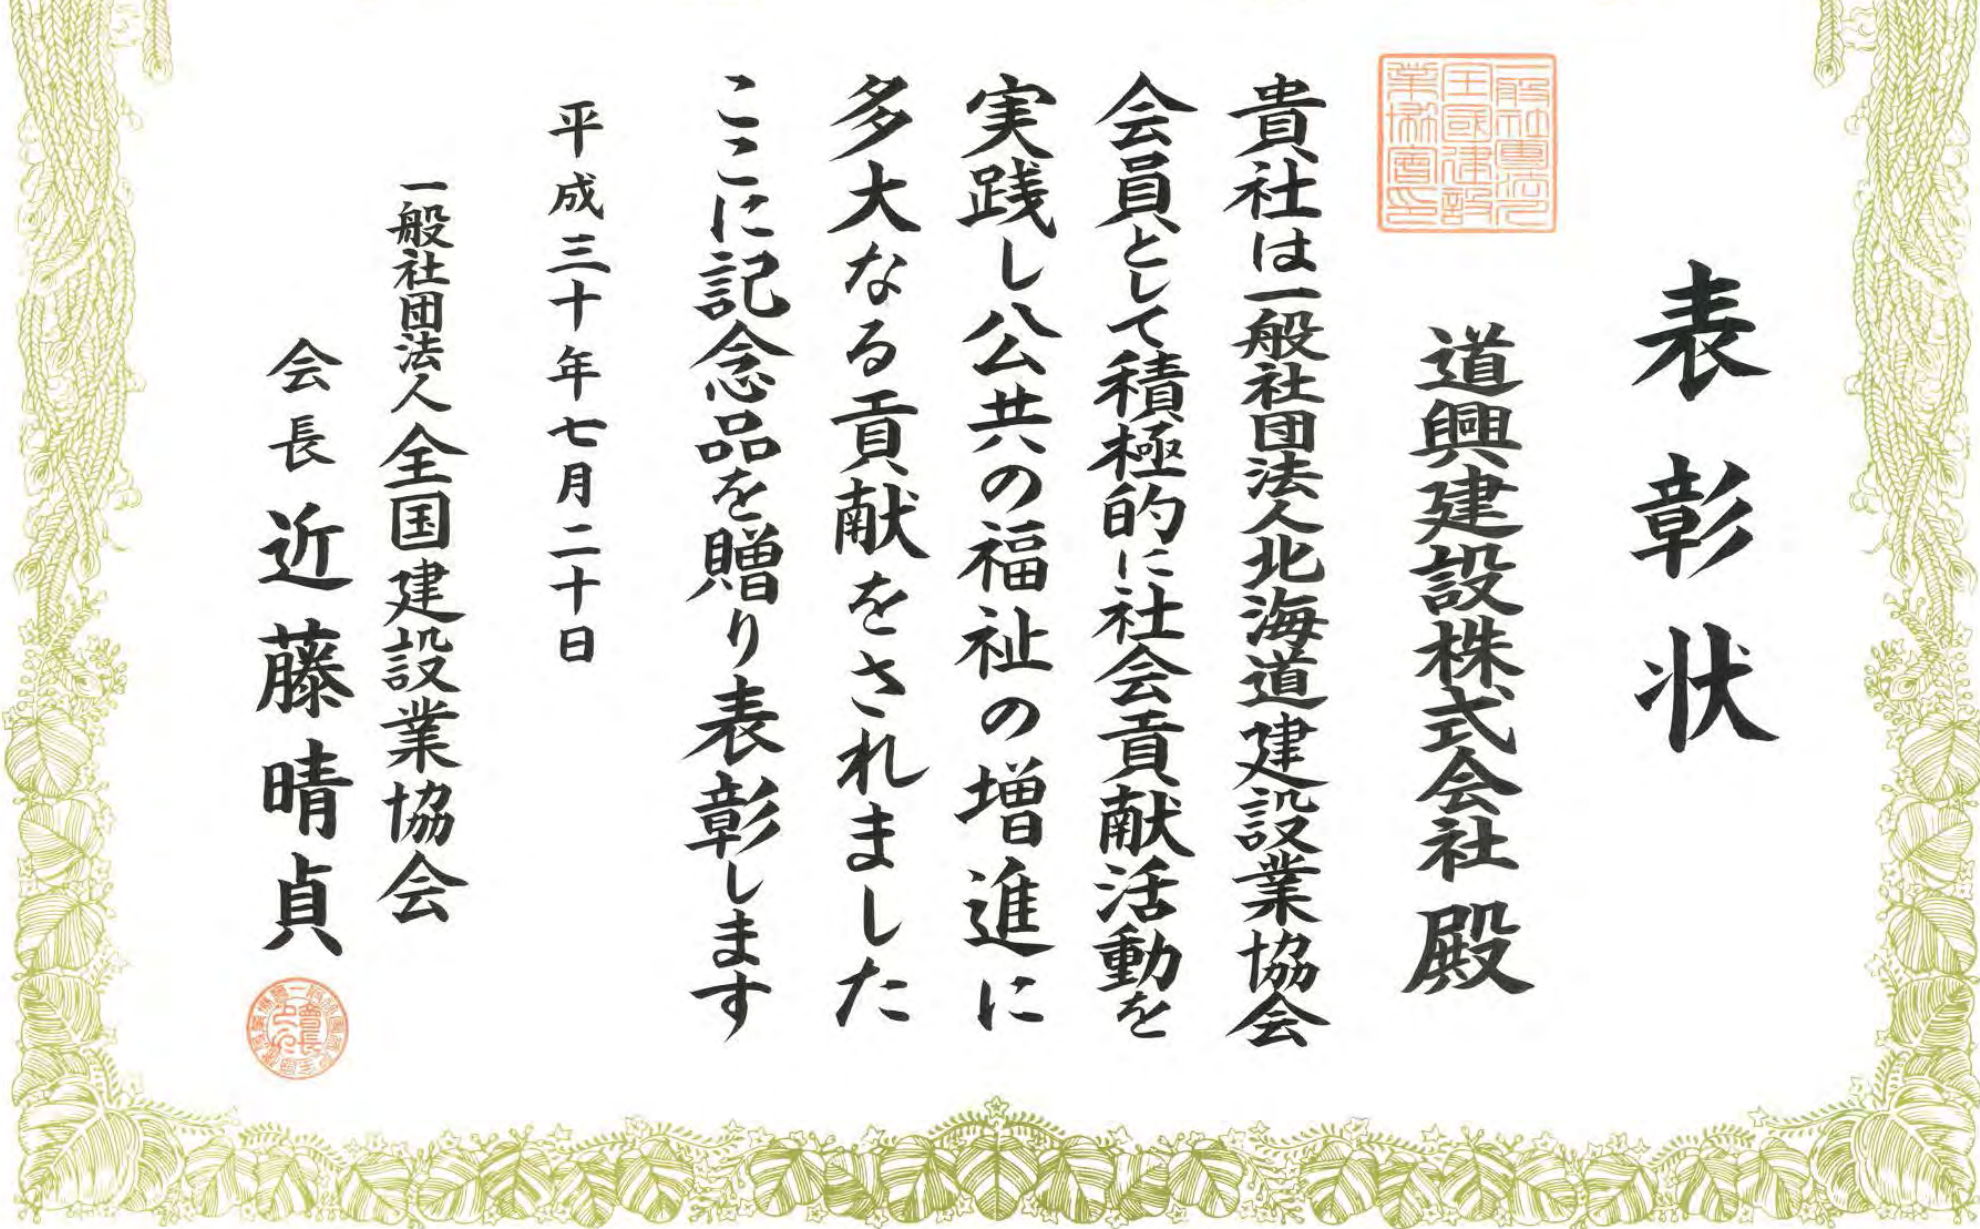 表彰状
道興建設株式会社 殿
貴社は一般社団法人北海道建設業協会
会員として積極的に社会貢献活動を
実践し公共の福祉の増進に
多大なる貢献をされました
ここに記念品を贈り表彰します
平成三十年七月二十日
一般社団法人全国建設業協会
会長 近藤晴貞